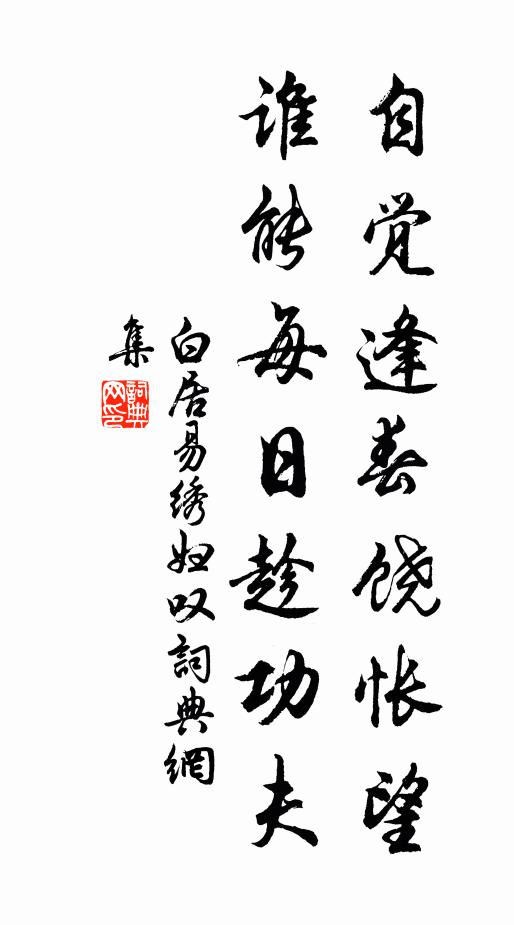 自觉逢春饶怅望
谁能每日趁功夫
白居易绣妇叹詞典網
集
詞典网印